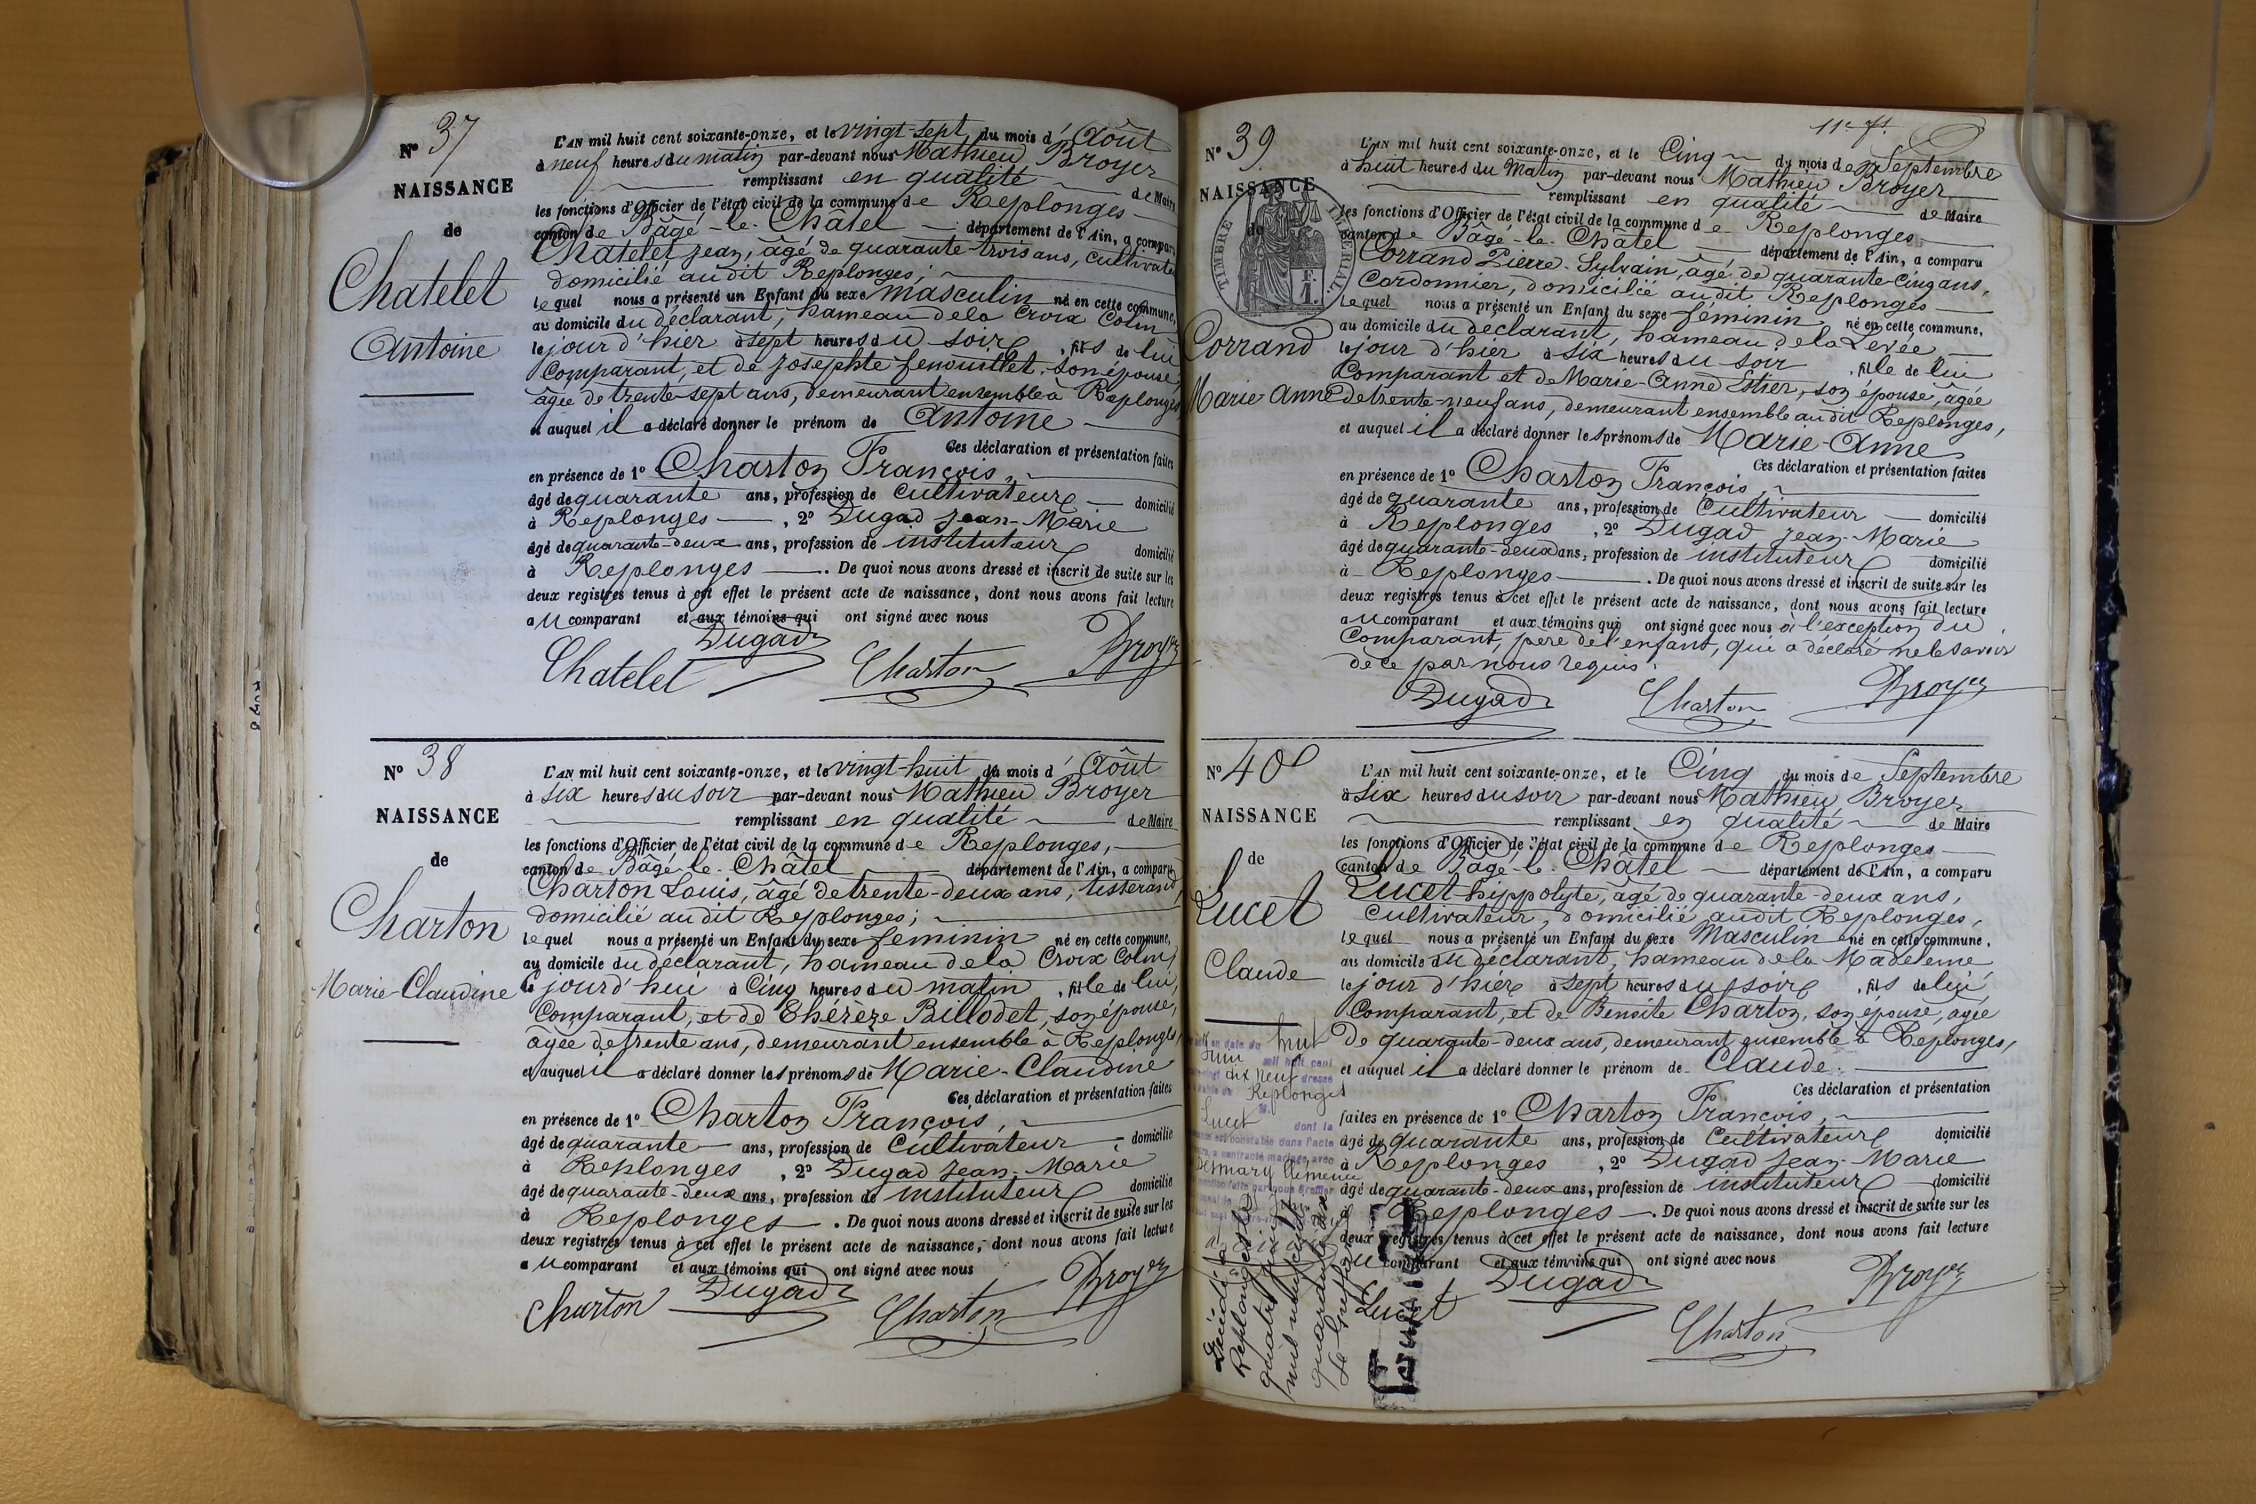 N° 37
NAISSANCE
de
Chatelet
Antoine
L'AN mil huit cent soixante-onze, et le vingt-sept du mois d' Août
à neuf heures du matin par-devant nous Mathieu Broyer
remplissant en qualité de Maire
les fonctions d'Officier de l'état civil de la commune de Replonges
canton de Bâgé-le-Châtel département de l'Ain, a comparu
Chatelet Jean, âgé de quarante-trois ans, cultivateur
domicilié audit Replonges;
lequel nous a présenté un Enfant du sexe masculin né en cette commune,
au domicile du déclarant, hameau de la Croix Colin
le jour d'hier à sept heures du soir, fils de lui
Comparant, et de Josephte fenouillet, son épouse,
âgée de trente-sept ans, demeurant ensemble à Replonges
et auquel il a déclaré donner le prénom de Antoine
Ces déclaration et présentation faites
en présence de 1° Charton François,
âgé de quarante ans, profession de cultivateur domicilié
à Replonges, 2° Dugad Jean-Marie
âgé de quarante-deux ans, profession de instituteur domicilié
à Replonges. De quoi nous avons dressé et inscrit de suite sur les
deux registres tenus à cet effet le présent acte de naissance, dont nous avons fait lecture
au comparant et aux témoins qui ont signé avec nous
Chatelet Dugad Charton Broyer
N° 38
NAISSANCE
de
Charton
Marie Claudine
L'AN mil huit cent soixante-onze, et le vingt-huit du mois d' Août
à six heures du soir par-devant nous Mathieu Broyer
remplissant en qualité de Maire
les fonctions d'Officier de l'état civil de la commune de Replonges,
canton de Bâgé-le-Châtel département de l'Ain, a comparu
Charton Louis, âgé de trente-deux ans, tisserand,
domicilié audit Replonges;
lequel nous a présenté un Enfant du sexe feminin né en cette commune,
au domicile du déclarant, hameau de la Croix Colin,
le jour d'hui à Cinq heures du matin, fille de lui,
Comparant, et de Thérèze Billodet, son épouse,
âgée de trente ans, demeurant ensemble à Replonges,
et auquel il a déclaré donner les prénoms de Marie-Claudine
Ces déclaration et présentation faites
en présence de 1° Charton François,
âgé de quarante ans, profession de Cultivateur domicilié
à Replonges, 2° Dugad Jean-Marie
âgé de quarante-deux ans, profession de instituteur domicilié
à Replonges. De quoi nous avons dressé et inscrit de suite sur les
deux registres tenus à cet effet le présent acte de naissance, dont nous avons fait lecture
au comparant et aux témoins qui ont signé avec nous
Charton Dugad Charton Broyer
11e
N° 39
NAISSANCE
de
TIMBRE IMPERIAL
Corrand
Marie Anne
L'AN mil huit cent soixante-onze, et le Cinq du mois de Septembre
à huit heures du Matin par-devant nous Mathieu Broyer
remplissant en qualité de Maire
les fonctions d'Officier de l'état civil de la commune de Replonges
canton de Bâgé-le-Châtel département de l'Ain, a comparu
Corrand Pierre-Sylvain, âgé de quarante-cinq ans,
Cordonnier, domicilié audit Replonges
lequel nous a présenté un Enfant du sexe féminin né en cette commune,
au domicile du déclarant, hameau de la Levée
le jour d'hier à six heures du soir, fille de lui
Comparant et de Marie-Anne Estier, son épouse, âgée
de trente-neuf ans, demeurant ensemble audit Replonges,
et auquel il a déclaré donner les prénoms de Marie-Anne
Ces déclaration et présentation faites
en présence de 1° Charton François,
âgé de quarante ans, profession de Cultivateur domicilié
à Replonges, 2° Dugad Jean-Marie
âgé de quarante-deux ans, profession de instituteur domicilié
à Replonges. De quoi nous avons dressé et inscrit de suite sur les
deux registres tenus à cet effet le présent acte de naissance, dont nous avons fait lecture
au comparant et aux témoins qui ont signé avec nous à l'exception du
Comparant, père de l'enfant, qui a déclaré ne le savoir
de ce par nous requis.
Dugad Charton Broyer
N° 40
NAISSANCE
de
Lucet
Claude
L'AN mil huit cent soixante-onze, et le Cinq du mois de Septembre
à six heures du soir par-devant nous Mathieu Broyer
remplissant en qualité de Maire
les fonctions d'Officier de l'état civil de la commune de Replonges
canton de Bâgé-le-Châtel département de l'Ain, a comparu
Lucet hippolyte, âgé de quarante-deux ans,
Cultivateur, domicilié audit Replonges,
lequel nous a présenté un Enfant du sexe Masculin né en cette commune,
au domicile du déclarant, hameau de la Madeleine
le jour d'hier à sept heures du soir, fils de lui
Comparant, et de Benoite Charton, son épouse, âgée
de quarante-deux ans, demeurant ensemble à Replonges,
et auquel il a déclaré donner le prénom de Claude.
Ces déclaration et présentation
faites en présence de 1° Charton François,
âgé de quarante ans, profession de Cultivateur domicilié
à Replonges, 2° Dugad Jean-Marie
âgé de quarante-deux ans, profession de instituteur domicilié
à Replonges. De quoi nous avons dressé et inscrit de suite sur les
deux registres tenus à cet effet le présent acte de naissance, dont nous avons fait lecture
au comparant et aux témoins qui ont signé avec nous
Lucet Dugad Charton Broyer
en date du huit
Juin mil huit cent
dix neuf dressé
Replonges
Lucet dont la
dans l'acte
a contracté mariage avec
Décédé à
Replonges le
quatre
mil neuf cent
quarante
Le Greffier